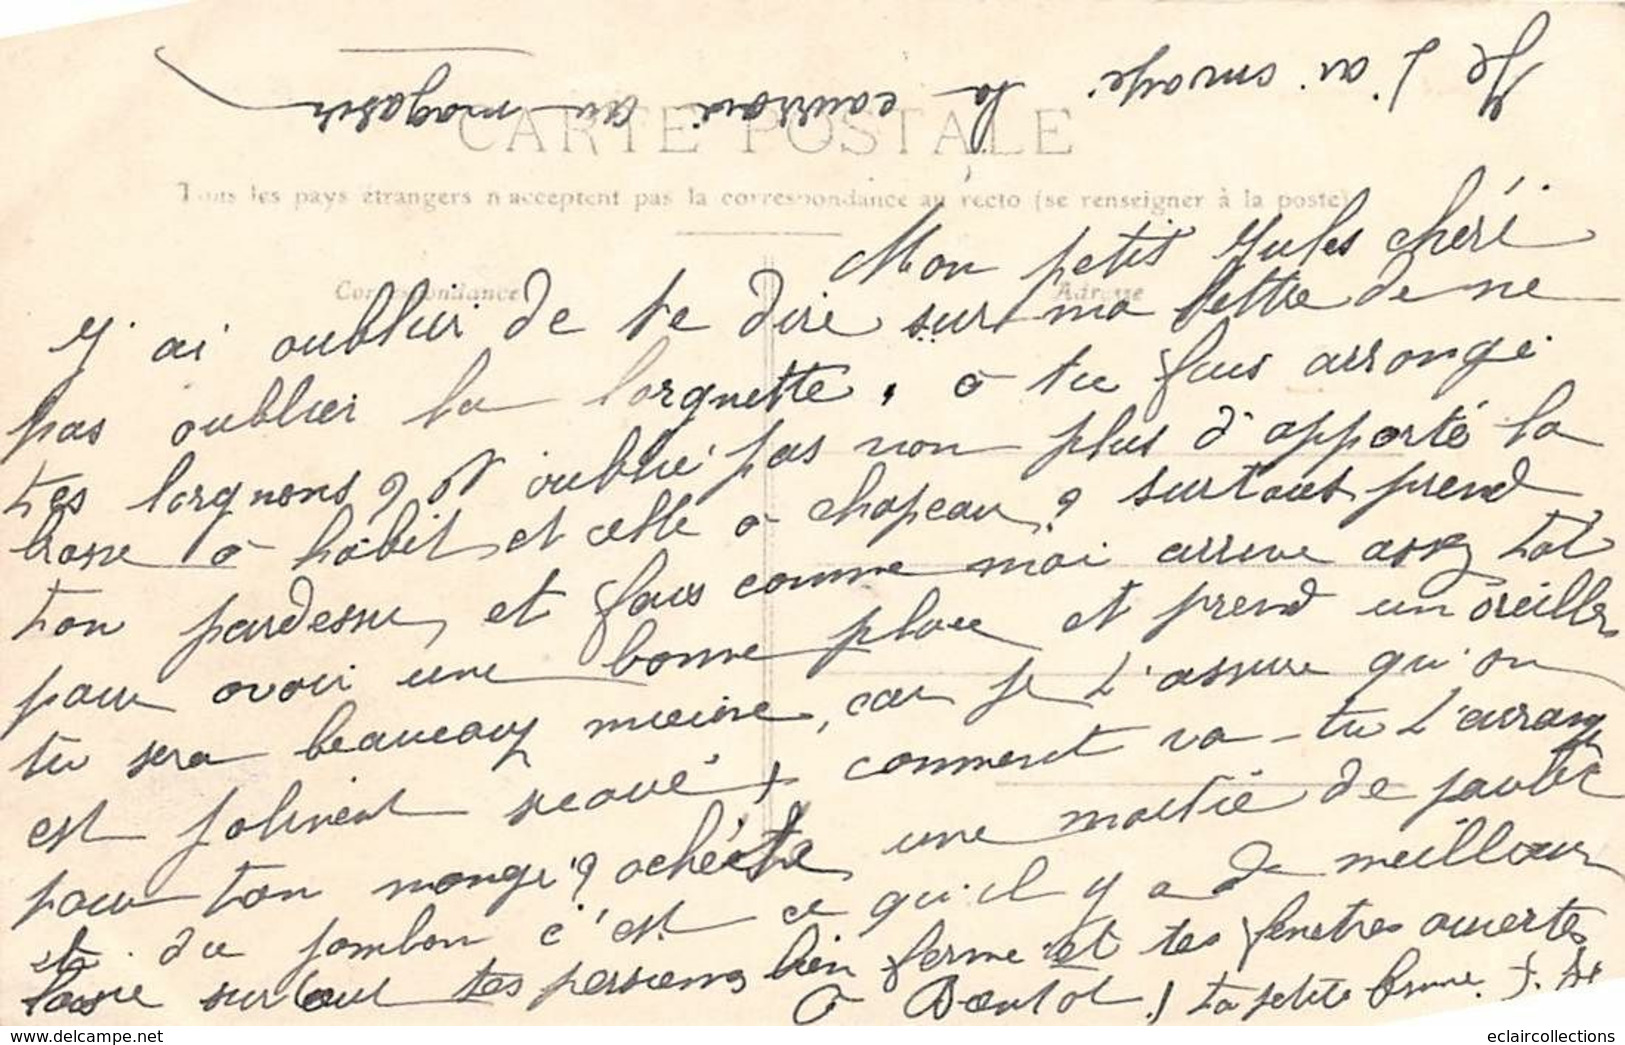 Je l'ai envoyé la courroi au magasin
CARTE POSTALE
Tous les pays étrangers n'acceptent pas la correspondance au recto (se renseigner à la poste)
Correspondance
Adresse
Mon petit Jules chéri
J'ai oublier de te dire sur ma lettre de ne
pas oublier la lorgnette, a tu fais arrangé
tes lorgnons? N'oublié pas non plus d'apporté la
brosse a habit et celle a chapeau? surtout prend
ton pardessu, et fais comme moi arrive assez tot
pour avoir une bonne place et prend un oreiller
tu sera beaucoup mieux, car je t'assure qu'on
est joliment secoué, comment va-tu t'arrang
pour ton mangé? achéte une moitié de poulet
et du jambon c'est ce qu'il y a de meilleur
laisse surtout tes persiennes bien fermé et tes fenetres ouvertes
A Bientot! ta petite femme. J.
eclaircollections